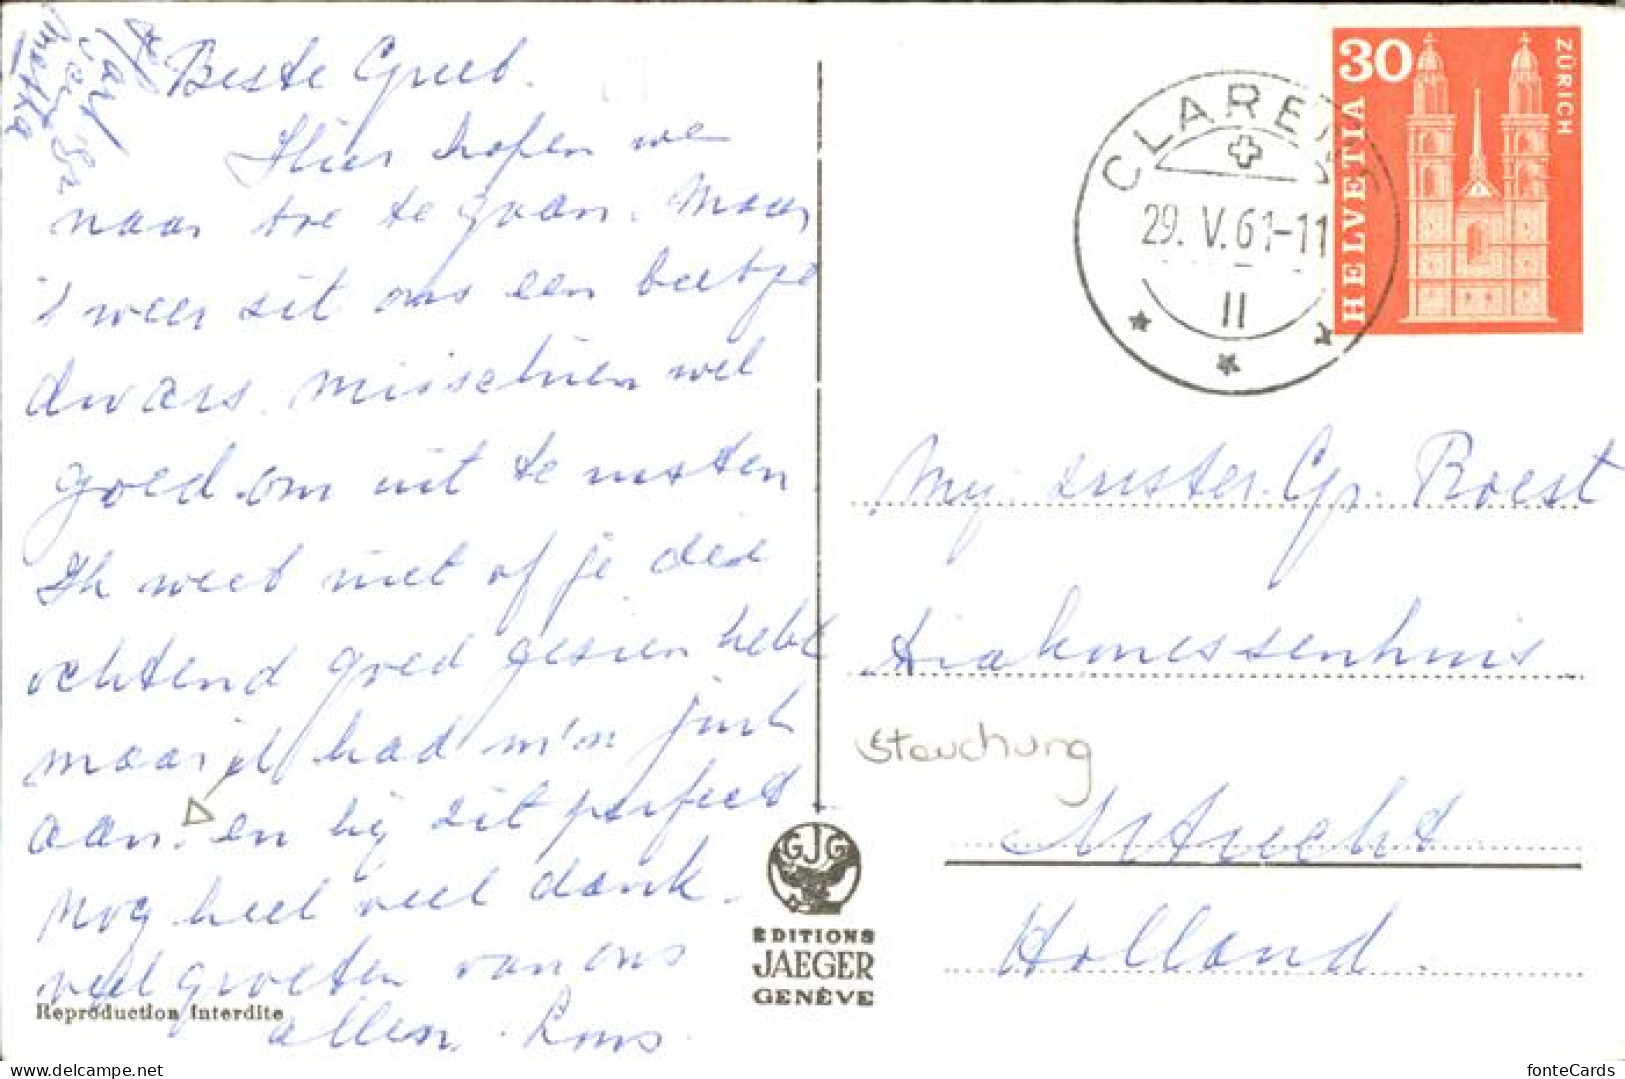 Beste Greet.
Hier hopen we
naar toe te gaan. Maar
't weer zit ons een beetje
dwars. Misschien wel
goed om uit te rusten
Ik weet niet of je die
ochtend goed gezien hebt
maar ik had m'n jurk
aan. en hij zit perfect
Nog heel veel dank.
veel groeten van ons
allen.
Reproduction interdite
EDITIONS
JAEGER
GENÈVE
GJG
30
HELVETIA
ZÜRICH
CLARENS
29. V. 61-11
II
Mej zuster. Gr. Roest
Diakonessenhuis
Stauchung
Utrecht
Holland
delcampe.net
my
fonteCards